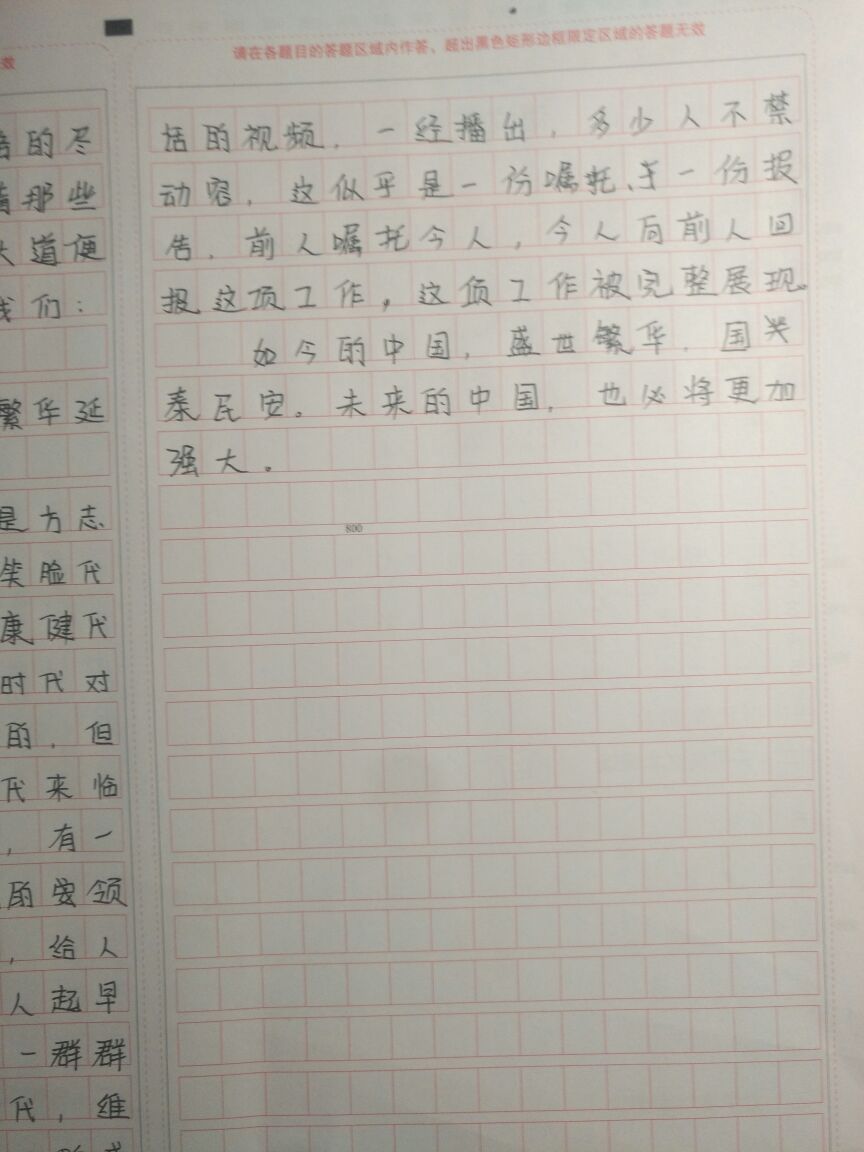 效
的尽
那些
道便
我们：
繁华延
是方志
笑脸代
康健代
时代对
的，但
代来临
，有一
的要领
，给人
人起早
一群群
代，维
请在各题目的答题区域内作答、超出黑色矩形边框限定区域的答题无效
话的视频，一经播出，多少人不禁
动容，这似乎是一份嘱托、于一份报
告，前人嘱托今人，今人向前人回
报这项工作，这项工作被完整展现。
如今的中国，盛世繁华，国兴
泰民安。未来的中国，也必将更加
强大。
800